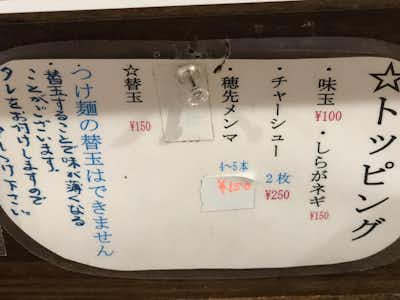 ☆トッピング
・味玉
¥100
・しらがネギ
¥150
・チャーシュー
2枚
¥250
・穂先メンマ
4~5本
¥150
☆替玉
¥150
つけ麺の替玉はできません
・替玉することで味が薄くなる
ことがございます。
タレをお付けしますので
下さい。